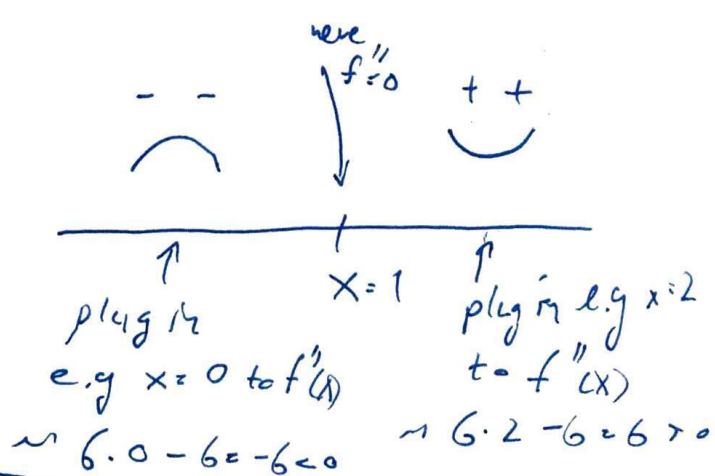 here
f''=0
- -
+ +
x=1
plug in
e.g x=0 to f''(x)
~ 6·0-6=-6<0
plug in e.g x=2
to f''(x)
~ 6·2-6=6>0